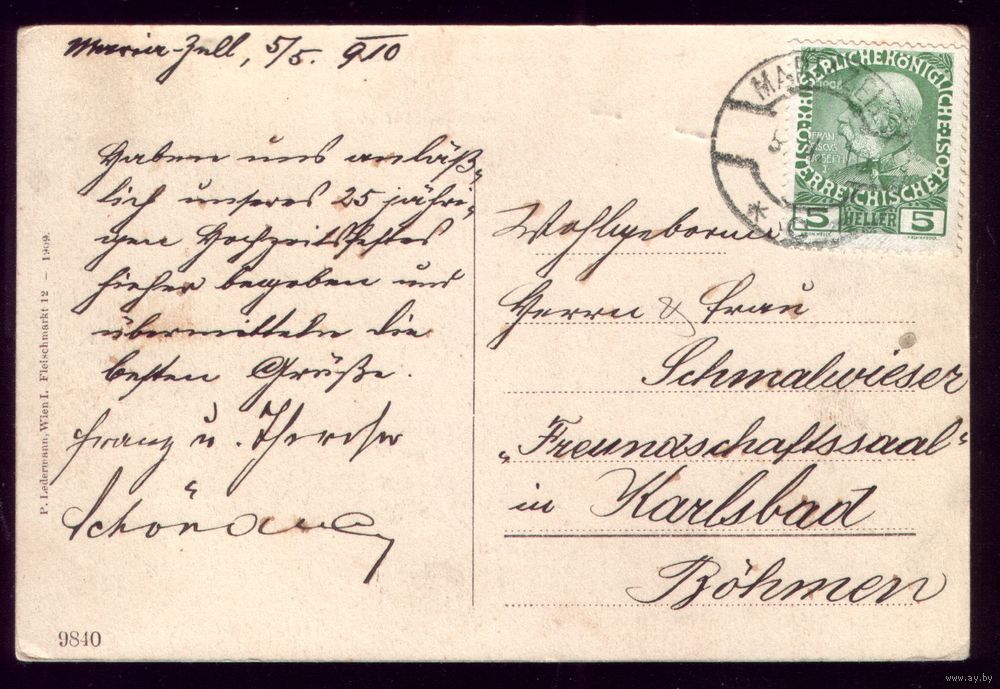 Maria-Zell, 5/5. 910
Haben uns anläß-
lich unseres 25 jähri-
gen Hochzeitsfestes
hieher begeben und
übermitteln die
besten Grüße.
Franz u. Therese
P. Ledermann, Wien I. Fleischmarkt 12 – 1909.
9840
MARIAZELL
KAISERLICHE KÖNIGLICHE
ÖSTERREICHISCHE POST
1908
FRAN
CISCVS
IOSEPH I
5 HELLER 5
Wohlgeboren
Herrn & Frau
Schmalwieser
„Freundschaftssaal“
in Karlsbad
Böhmen
www.ay.by